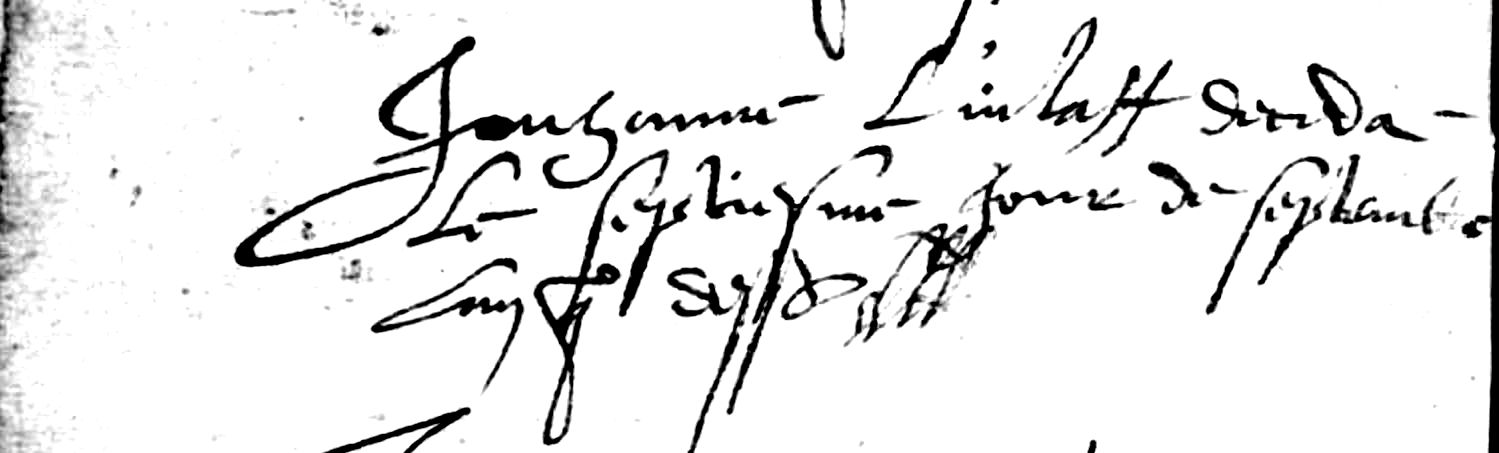 Jouhanne Linlaff deceda
Le septiesme Jour de septembre